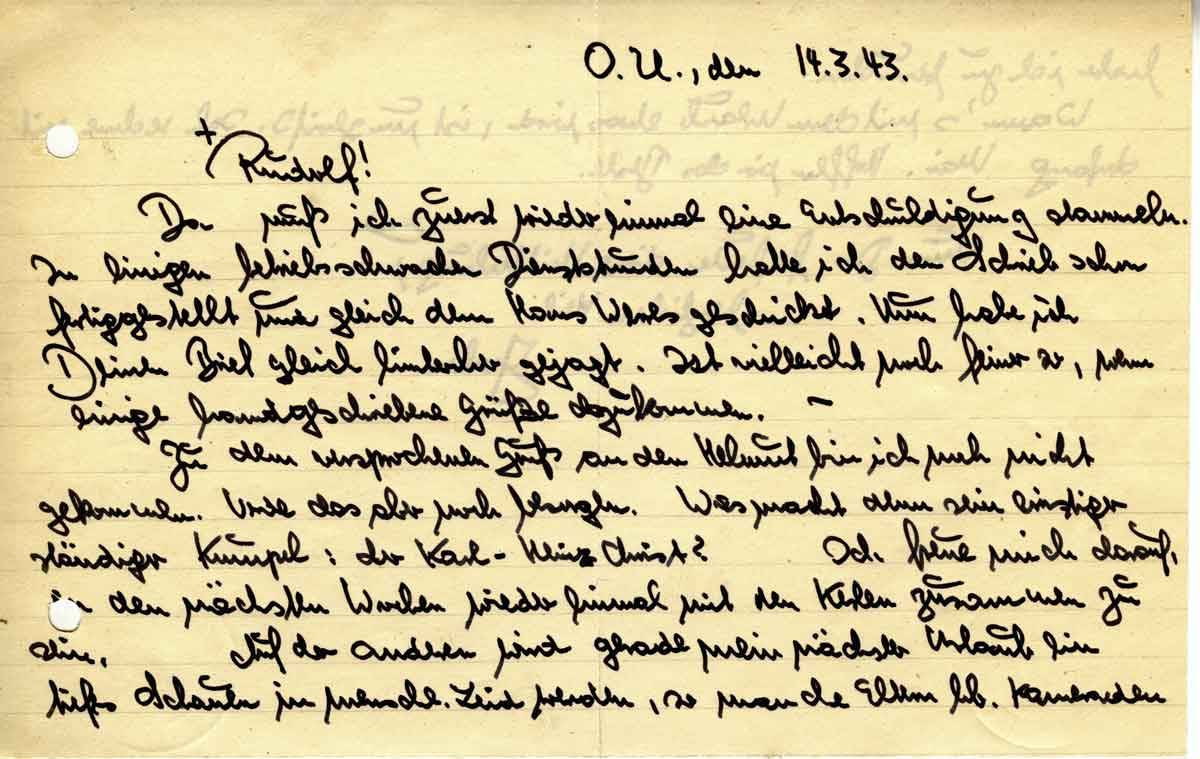 O.U., den 14.3.43.
+
Rudolf!
Da muß ich zuerst wieder einmal eine Entschuldigung stammeln.
In einigen betriebsschwachen Dienststunden hatte ich den Schrieb schon
fertiggestellt und gleich dem Hans geschickt. Nun habe ich
Deinen Brief gleich hinterher gejagt. Ist vielleicht noch feiner so, wenn
einige handgeschriebene Grüße dazukommen. –
Zu dem versprochenen Gruß an den Helmut bin ich noch nicht
gekommen. Werde das aber noch besorgen. Was macht denn sein einstiger
ständiger Kumpel: der Karl-Heinz Christ? Och freue mich darauf,
in den nächsten Wochen wieder einmal mit den Kerlen zusammen zu
sein. Auf der anderen wird gerade mein nächster Urlaub ein
tiefes Schauen in mensche. Leid werden, wo manche Eltern lb. Kameraden